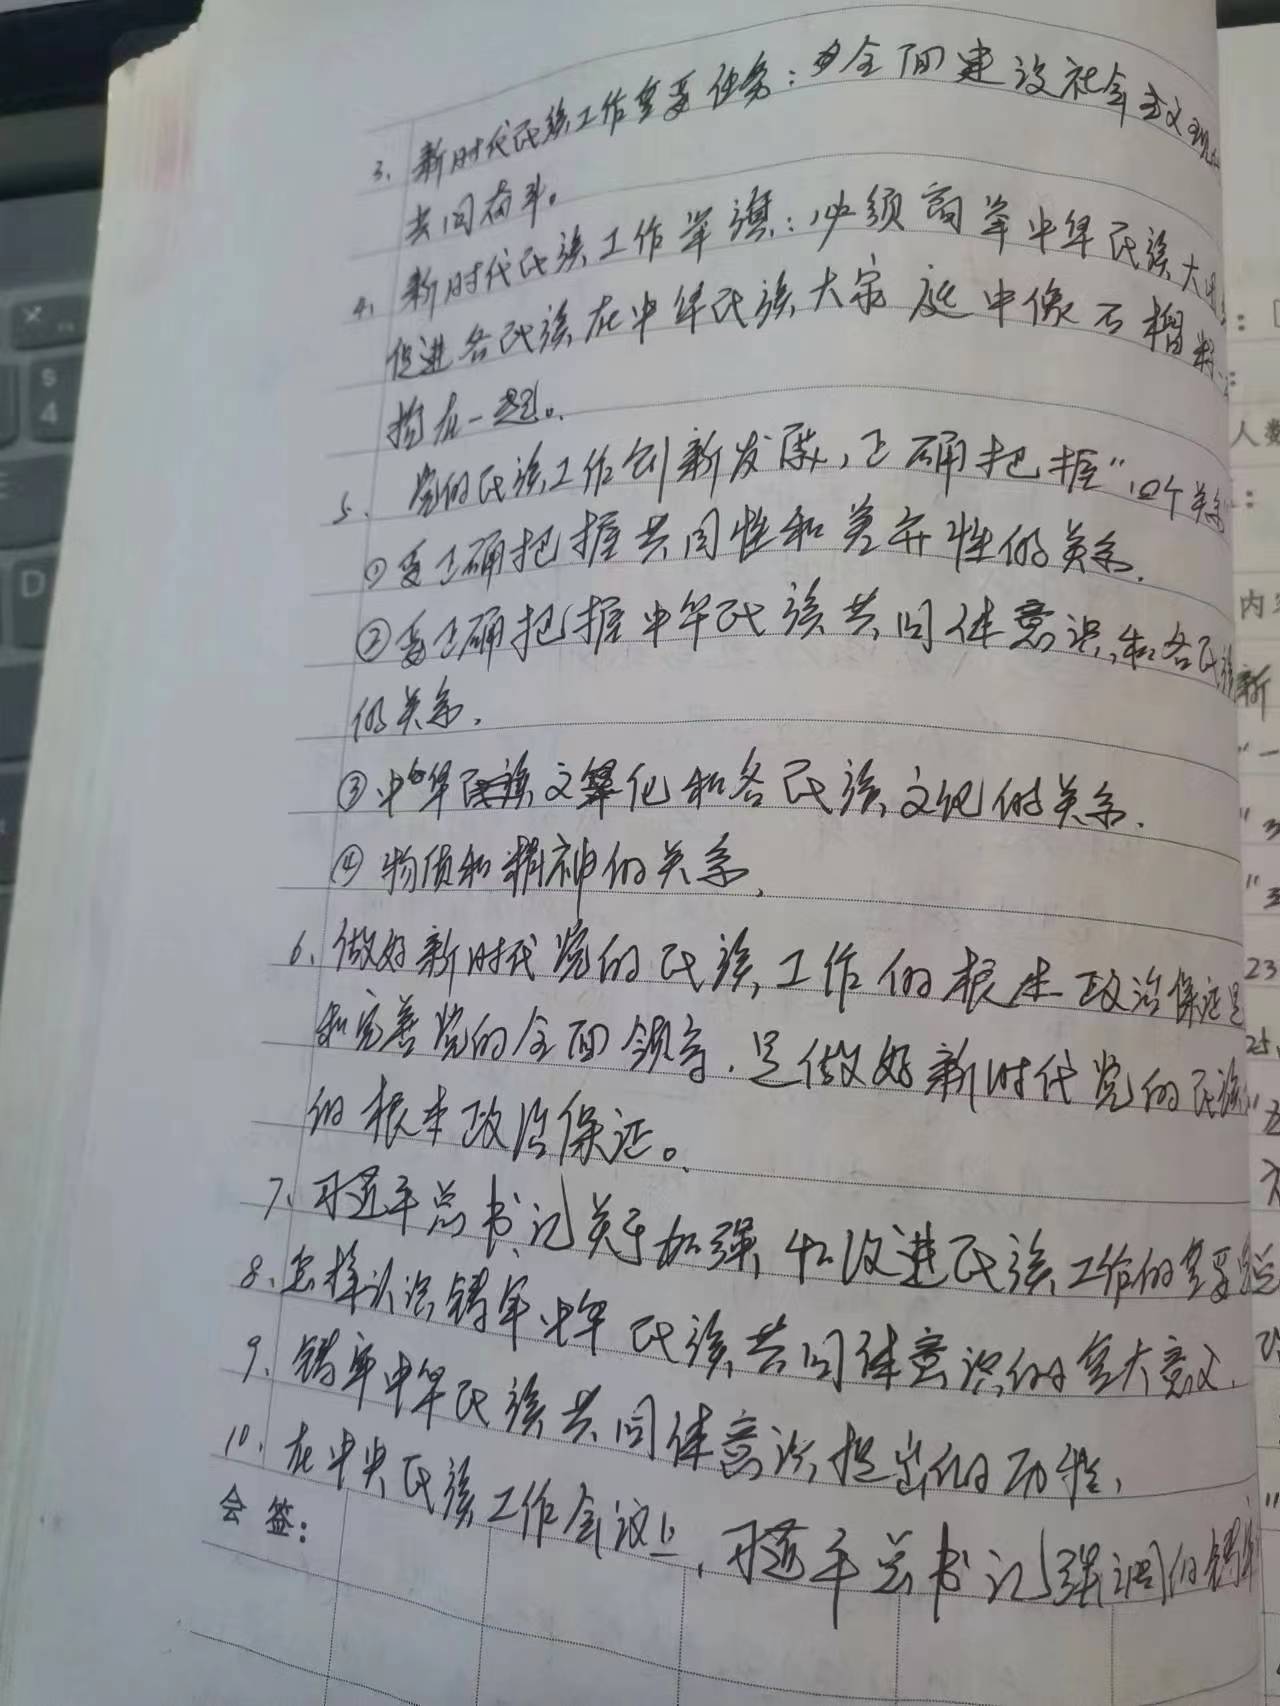 3、新时代民族工作重要任务：为全面建设社会主义现
共同奋斗。
4、新时代民族工作举旗：必须高举中华民族大团
促进各民族在中华民族大家庭中像石榴籽
抱在一起。
5、党的民族工作创新发展,正确把握"四个关系
①要正确把握共同性和差异性的关系.
②要正确把握中华民族共同体意识和各民族
的关系.
③中华民族文化和各民族文化的关系.
④物质和精神的关系.
6、做好新时代党的民族工作的根本政治保证是
和完善党的全面领导.是做好新时代党的民族
的根本政治保证。
7、习近平总书记关于加强和改进民族工作的重要
8、怎样认识铸牢中华民族共同体意识的重大意义.
9、铸牢中华民族共同体意识提出的
10、在中央民族工作会议上,习近平总书记强调的铸牢
会签：
人数
内
新
23
25